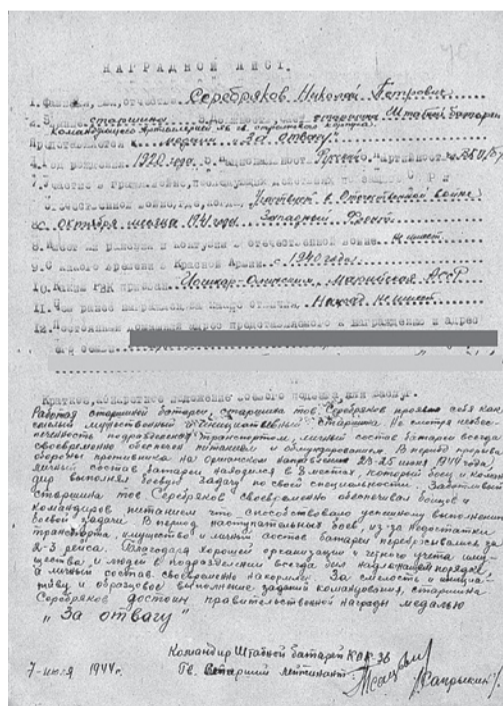 НАГРАДНОЙ ЛИСТ.
1. Фамилия, имя, отчество Серебряков Николай Петрович
2. Звание старшина 3. Должность, часть старшина Штабной батареи
Командующего Артиллерией 36 гв. стрелкового корпуса
Представляется к медали "За отвагу"
4. Год рождения 1920 года 5. Национальность Русский 6. Партийность ВКП/б/
7. Участие в гражданской войне, последующих действиях по защите СССР и
отечественной войне, где, когда, Участвует в Отечественной войне
с октября месяца 1941 года Западный Фронт
8. Имеет ли ранения и контузии в отечественной войне не имеет
9. С какого времени в Красной Армии с 1940 года
10. Каким РВК призван Йошкар-Олинским, Марийская АССР
11. Чем ранее награжден, за какие отличия Наград не имеет
12. Постоянный домашний адрес представляемого к награждению и адрес
его семьи
Краткое, конкретное изложение боевого подвига, или заслуг.
Работая старшиной батареи, старшина тов. Серебряков проявил себя как
смелый мужественный и инициативный старшина. Не смотря на необес-
печенность подразделения транспортом, личный состав батареи всегда
своевременно обеспечен питанием и обмундированием. В период прорыва
обороны противника на Оршанском направлении 23-25 июня 1944 года,
личный состав батареи находился в 8 местах, который боец и коман-
дир выполнял боевую задачу по своей специальности. Заботливый
старшина тов. Серебряков своевременно обеспечивал бойцов и
командиров питанием что способствовало успешному выполнению
боевой задачи. В период наступательных боев, из-за недостатки
транспорта, имущество и личный состав батареи перебрасывался за
2-3 рейса. Благодаря хорошей организации и четкого учета иму-
щества и людей в подразделении всегда был надлежащий порядок,
а личный состав своевременно накормлен. За смелость и инициа-
тиву и образцовое выполнение заданий командования, старшина
Серебряков достоин правительственной награды медалью
"За отвагу"
Командир Штабной батареи КАК-36
7-июля 1944г. Гв. Старший лейтенант /Сапрыкин/